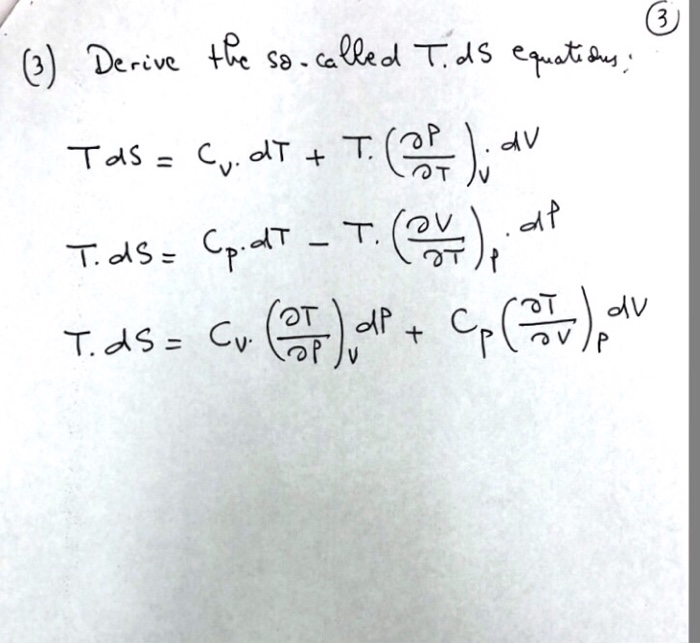 ③
(3) Derive the so-called T.dS equations:
TdS = Cᵥ. dT + T. (∂P/∂T)ᵥ. dV
T.dS = Cₚ.dT – T. (∂V/∂T)ₚ. dP
T.dS = Cᵥ. (∂T/∂P)ᵥ dP + Cₚ (∂T/∂V)ₚ dV